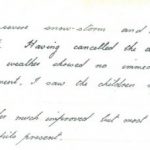 severe snow-storm and
Having cancelled the
weather showed no imme
ment. I saw the children
much improved but most
present.